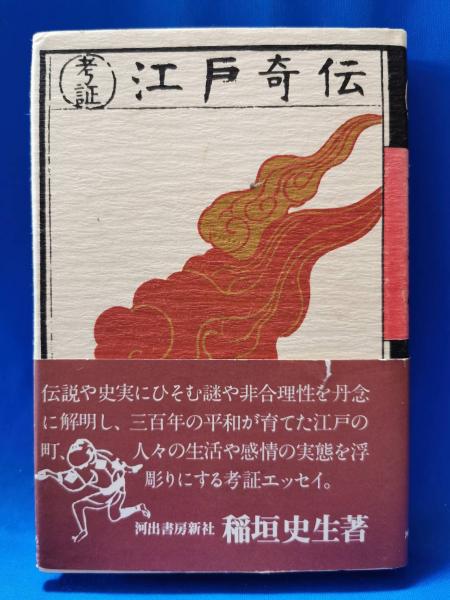 考証
江戸奇伝
伝説や史実にひそむ謎や非合理性を丹念
に解明し、三百年の平和が育てた江戸の
町、人々の生活や感情の実態を浮
彫りにする考証エッセイ。
河出書房新社 稲垣史生著